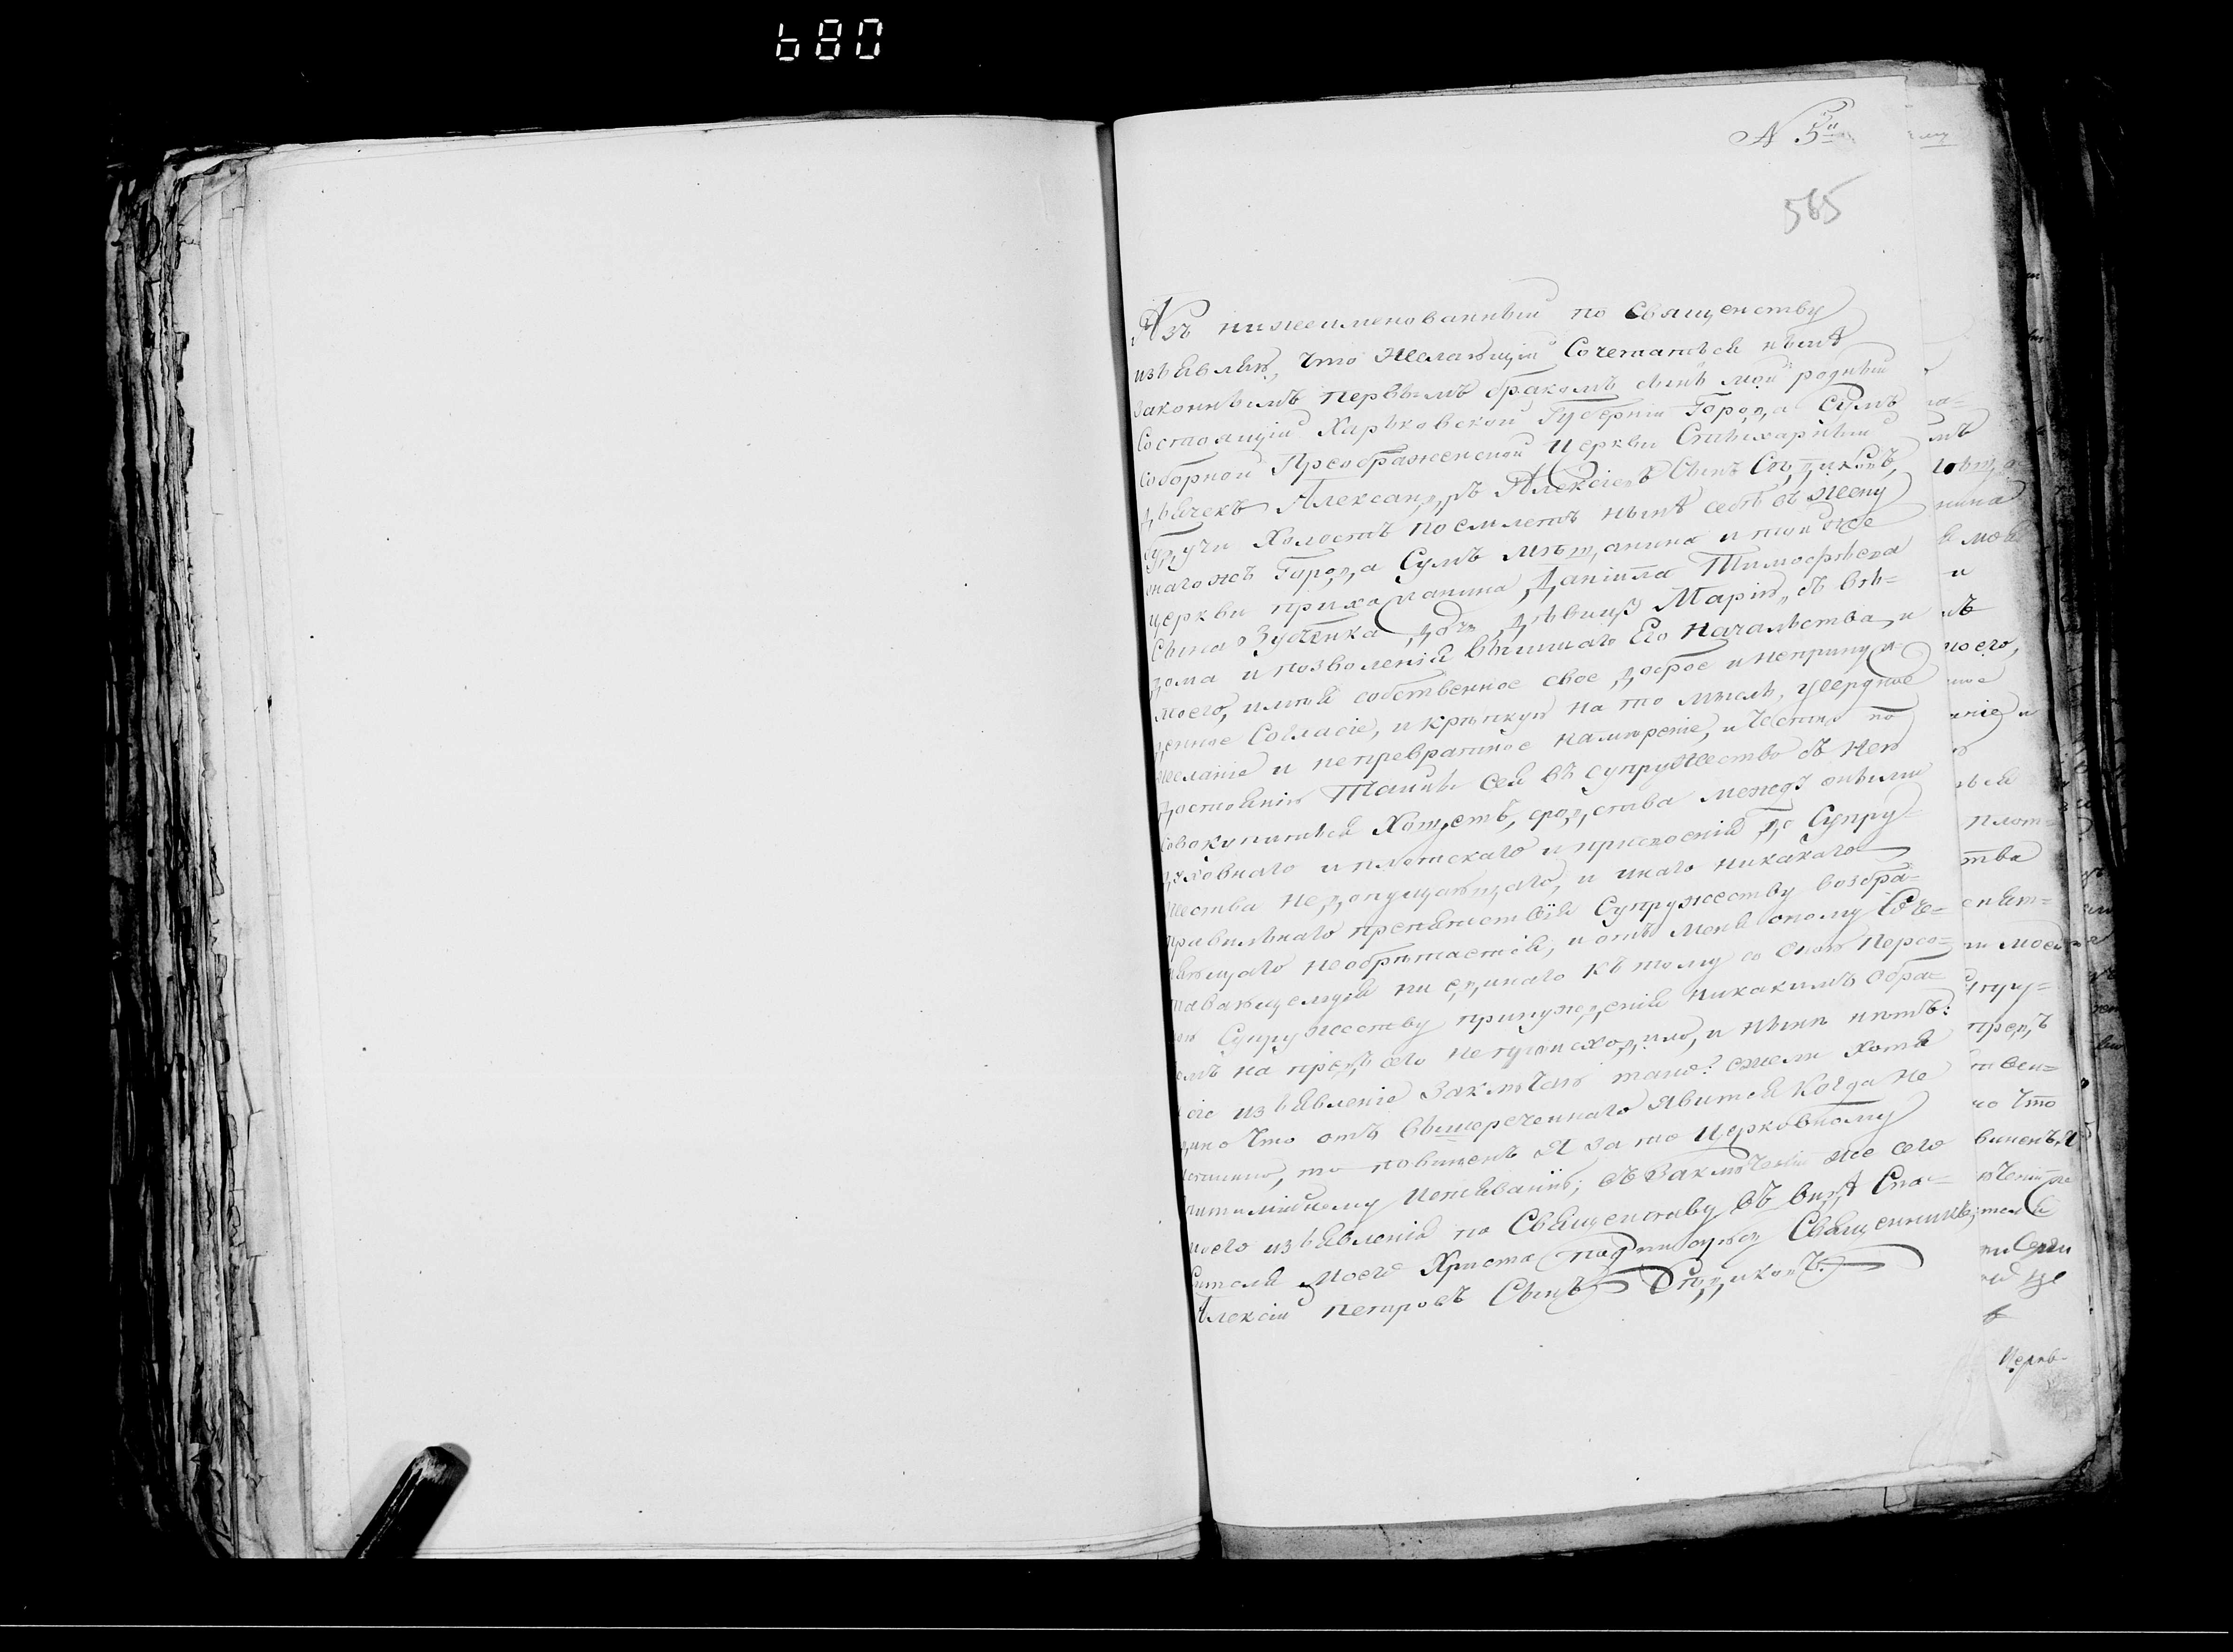 680
N 5й
565
Азъ нижеименованный по священству
изъявляю, что желающій сочетаться нынѣ
законнымъ первымъ бракомъ сынъ мой родный
состоящій Харьковской Губерніи Города Сумъ
соборной Преображенской церкви Стихарный
дьячекъ Александръ Алексіевъ сынъ
будучи холостъ поемлетъ нынѣ себѣ въ жену
тогожъ Города Сумъ мѣщанина и тойже
церкви прихожанина Даніила Тимофѣева
сына Зубенка дочь дѣвицу Марію, съ вѣ-
дома и позволенія вышшаго Его Начальства, и
моего, имѣя собственное свое доброе и непринуж-
денное согласіе, и крѣпкую на то мысль, усердное
желаніе и непревратное намѣреніе, и честно по
достоянію Тайны сея въ супружество съ нею
совокупиться хощетъ, сродства между оными
духовнаго и плотскаго и присвоенія до супру-
жества недопущающаго, и инаго никакаго
правильнаго препятствія супружеству возбра-
няющаго необрѣтается, и отъ мене оному соче-
тавающемуся ни единаго къ тому со оною персо-
ною супружеству принужденія никакимъ обра-
зомъ на предъ сего непроисходило, и нынѣ нѣтъ:
сіе изъявленіе заключаю тако: ежели хотя
едино что отъ вышереченнаго явится когда не
истинно, то повиненъ я за то церковному
питимійному истязанію; въ заключеніи же сего
моего изъявленія по священству въ видѣ Спа-
сителя моего Христа подписуюся священникъ
Алексій Петровъ сынъ